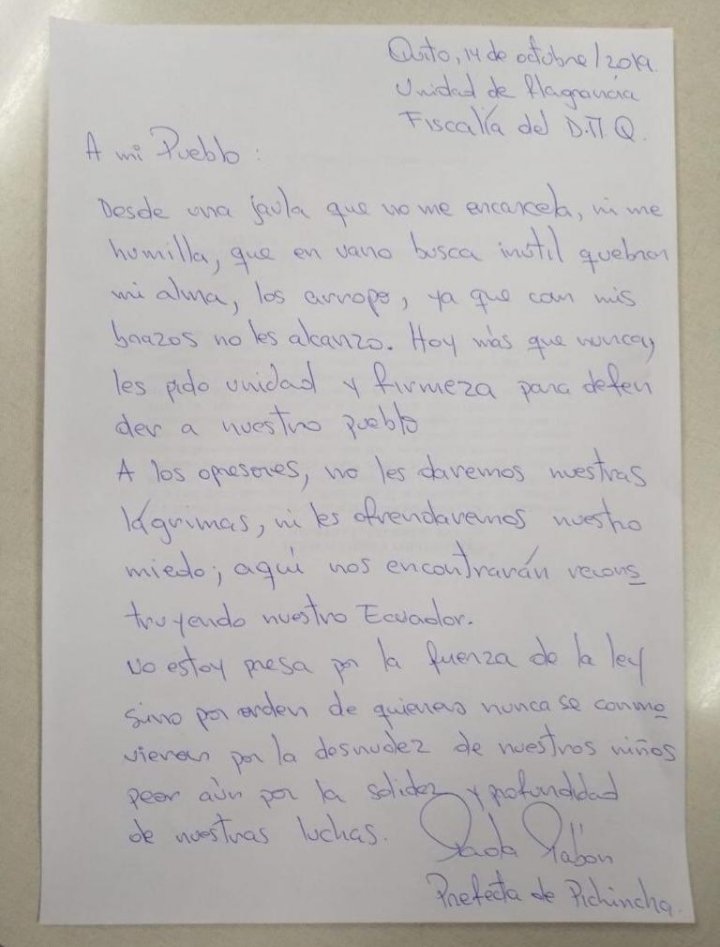 Quito, 14 de octubre/2019
Unidad de flagrancia
Fiscalía del D.M Q.
A mi Pueblo:
Desde una jaula que no me encarcela, ni me
humilla, que en vano busca inútil quebrar
mi alma, los arropo, ya que con mis
brazos no les alcanzo. Hoy más que nunca,
les pido unidad y firmeza para defen
der a nuestro pueblo
A los opresores, no les daremos nuestras
lágrimas, ni les ofrendaremos nuestro
miedo; aquí nos encontrarán recons
truyendo nuestro Ecuador.
No estoy presa por la fuerza de la ley
sino por orden de quienes nunca se conmo
vieron por la desnudez de nuestros niños
peor aún por la solidez y profundidad
de nuestras luchas. Paola Pabón
Prefecta de Pichincha.